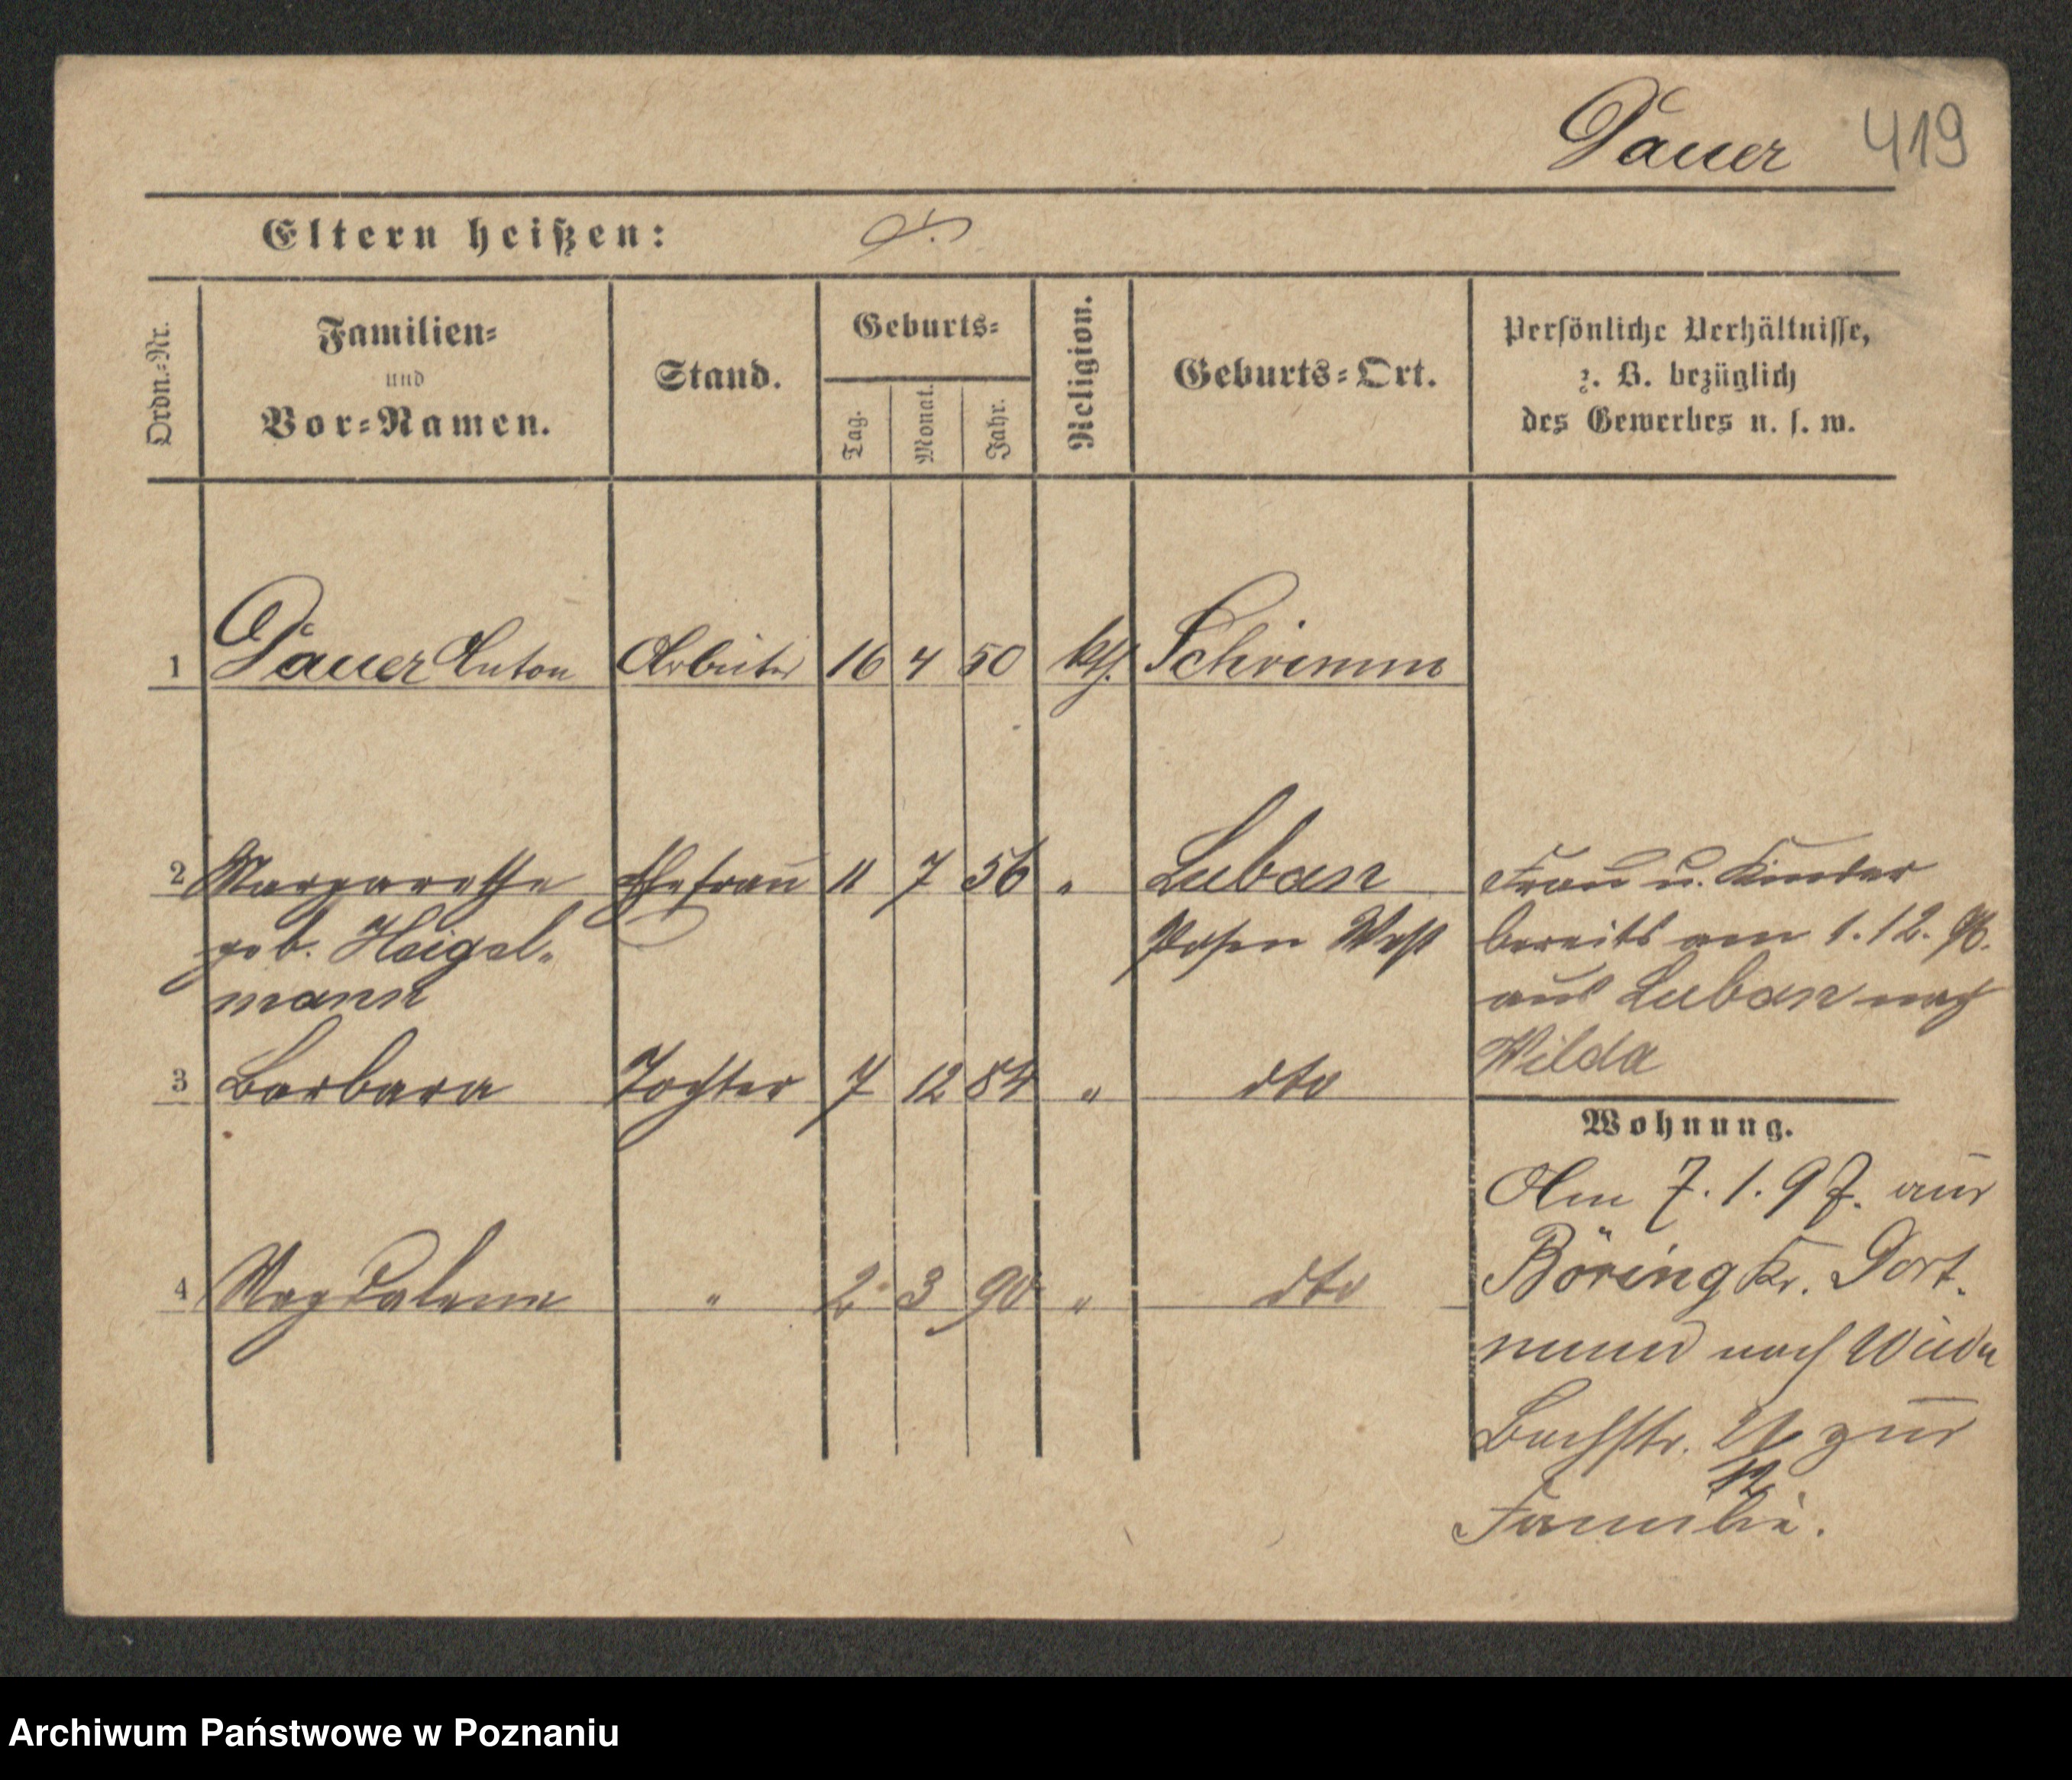 Dauer 419
Eltern heißen:
Ordn.-Nr.
Familien-
und
Vor-Namen.
Stand.
Geburts-
Tag.
Monat.
Jahr.
Religion.
Geburts-Ort.
Persönliche Verhältnisse,
z. B. bezüglich
des Gewerbes u. s. w.
1 Dauer Anton Arbeiter 16 4 50 kth. Schrimm
2 Margarethe Ehefrau 11 7 56 " Luban
geb. Heigel-
mann
Posen West
Frau u. Kinder
bereits am 1.12.96.
aus Luban nach
Wilda
3 Barbara Tochter 7 12 84 " dto
4 Magdalena " 2 3 90 " dto
Wohnung.
Am 7.1.97. aus
Böring Kr. Dort-
mund nach Wilda
Bachstr. zur
Familie.
Archiwum Państwowe w Poznaniu